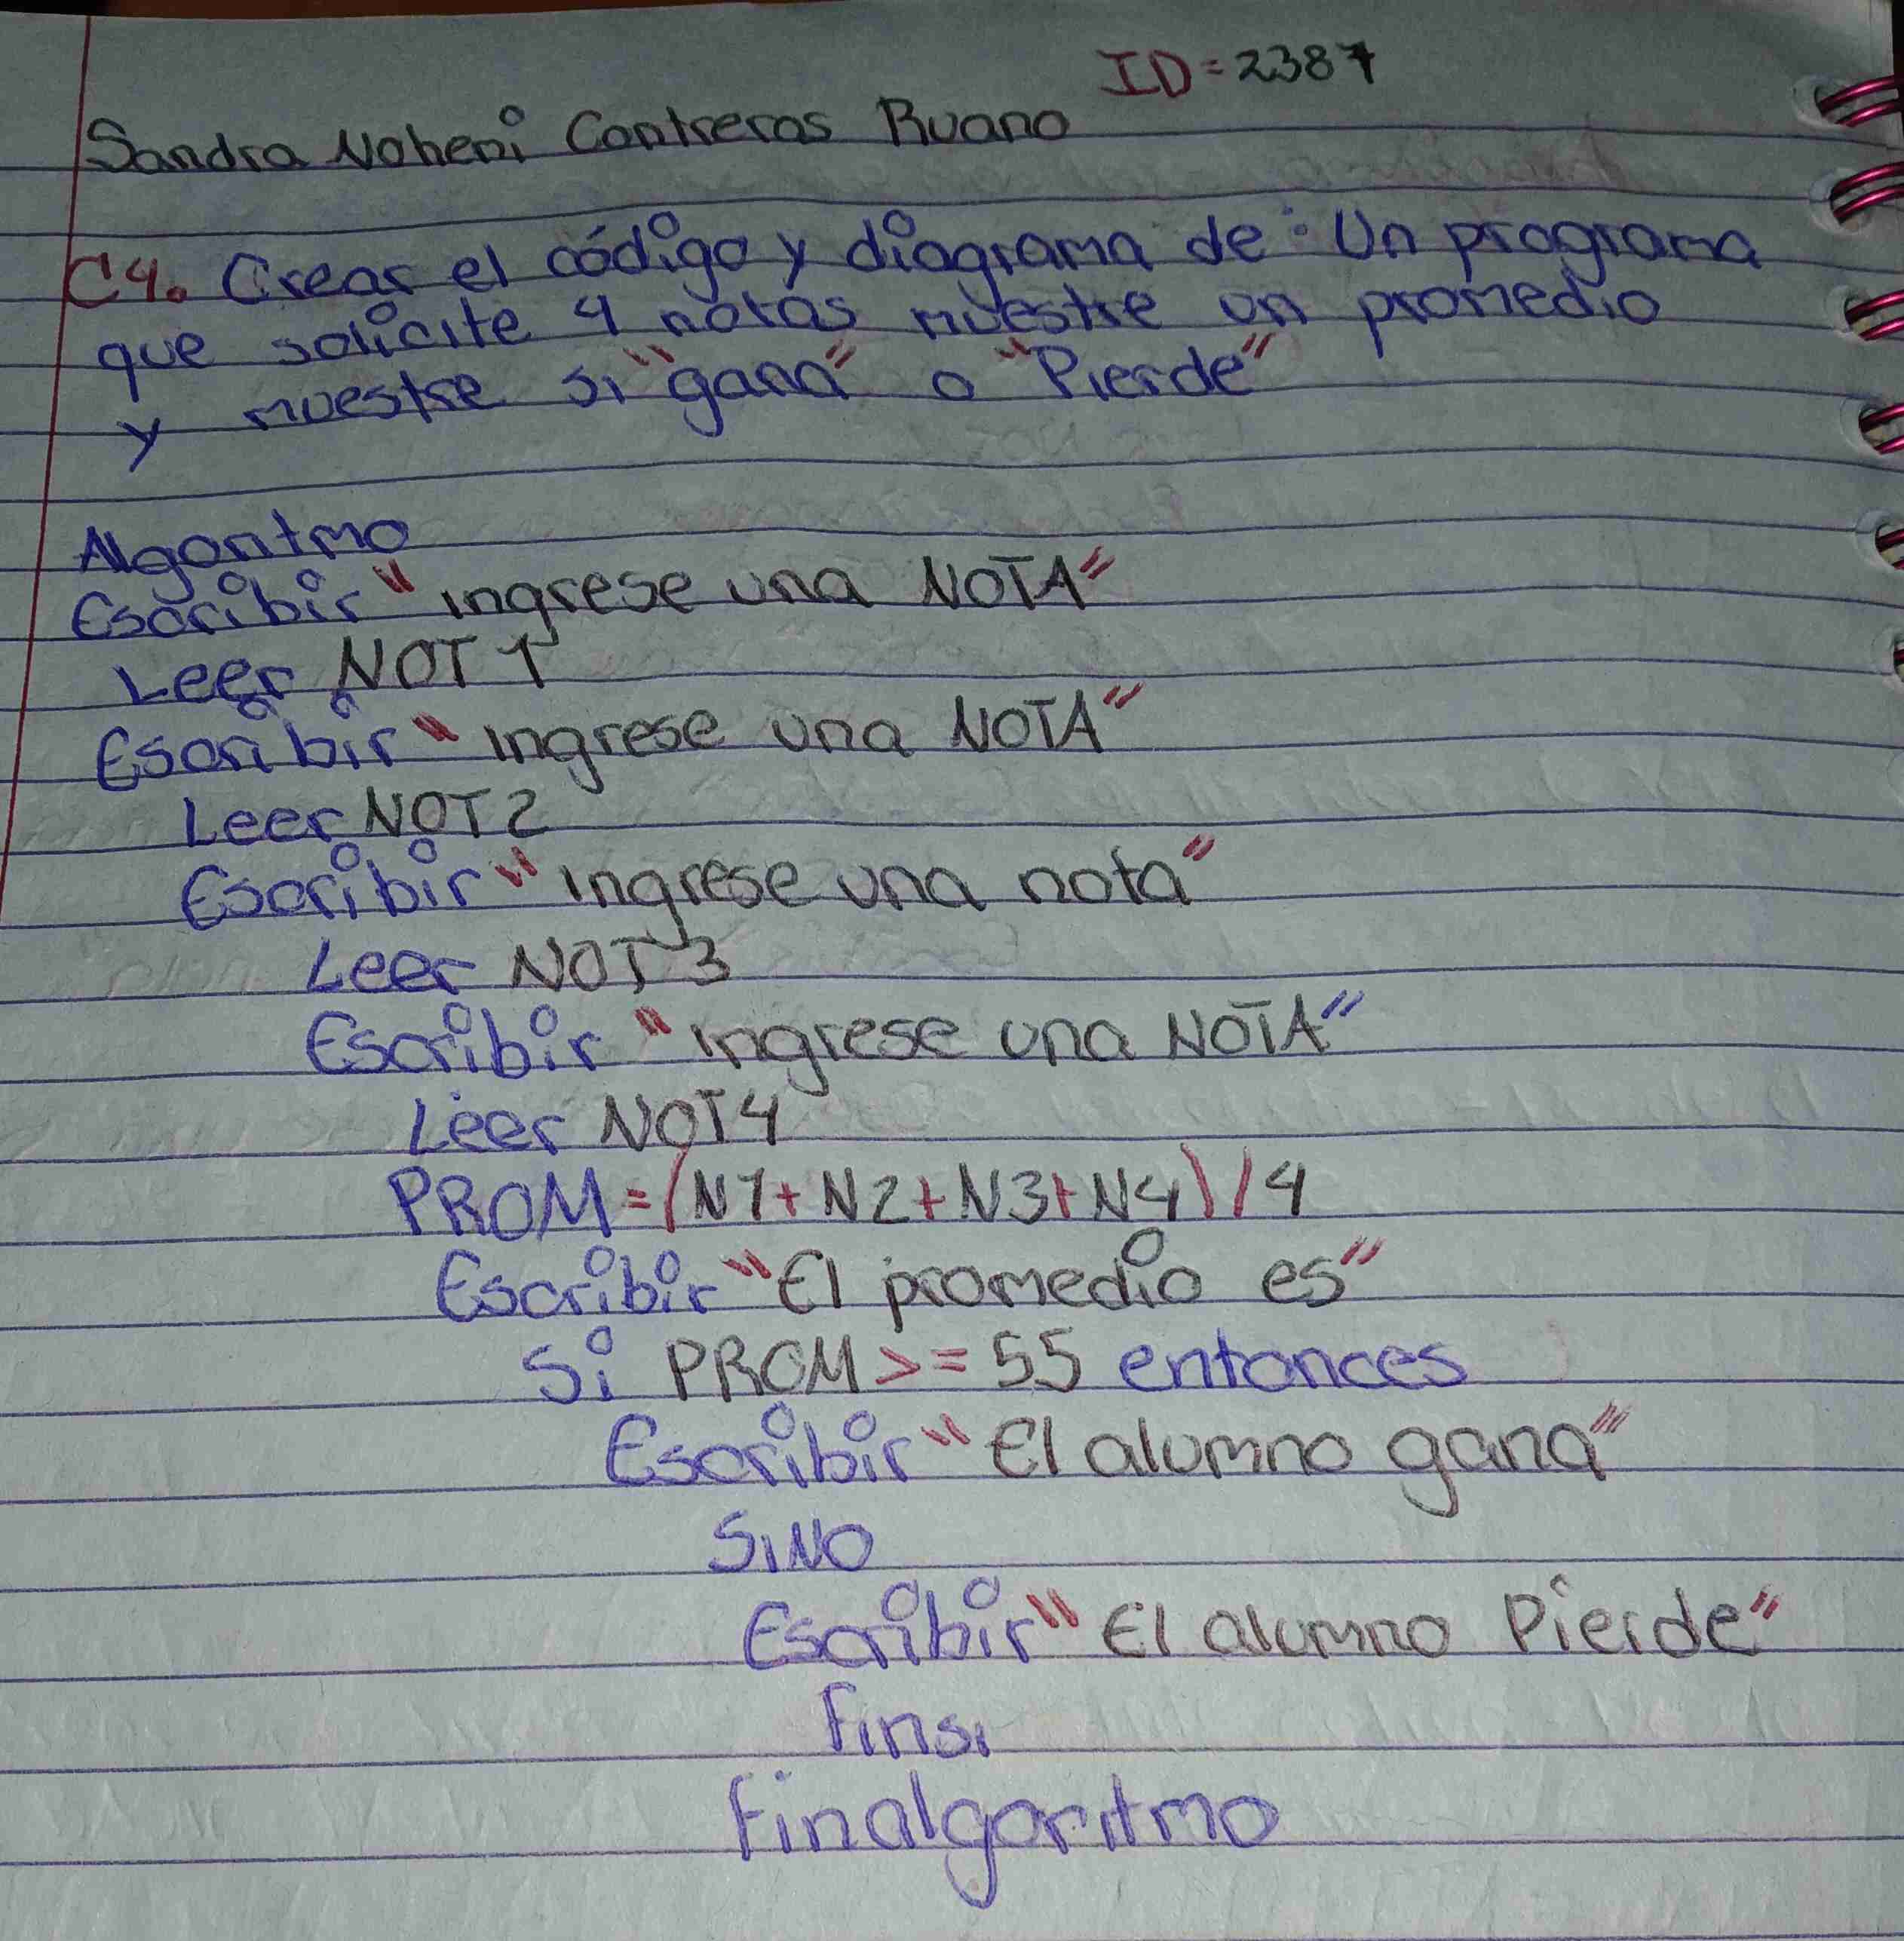 ID=2387
Sandra Noheni Contreras Ruano
C4. Crear el código y diagrama de: Un programa
que solicite 4 notas muestre un promedio
y muestre si "gana" o "Pierde"
Algoritmo
Escribir "ingrese una NOTA"
Leer NOT 1
Escribir "ingrese una NOTA"
Leer NOT2
Escribir "ingrese una nota"
Leer NOT 3
Escribir "ingrese una NOTA"
Leer NOT4
PROM=(N1+N2+N3+N4)/4
Escribir "El promedio es"
Si PROM>=55 entonces
Escribir "El alumno gana"
SiNO
Escribir "El alumno Pierde"
Finsi
Finalgoritmo